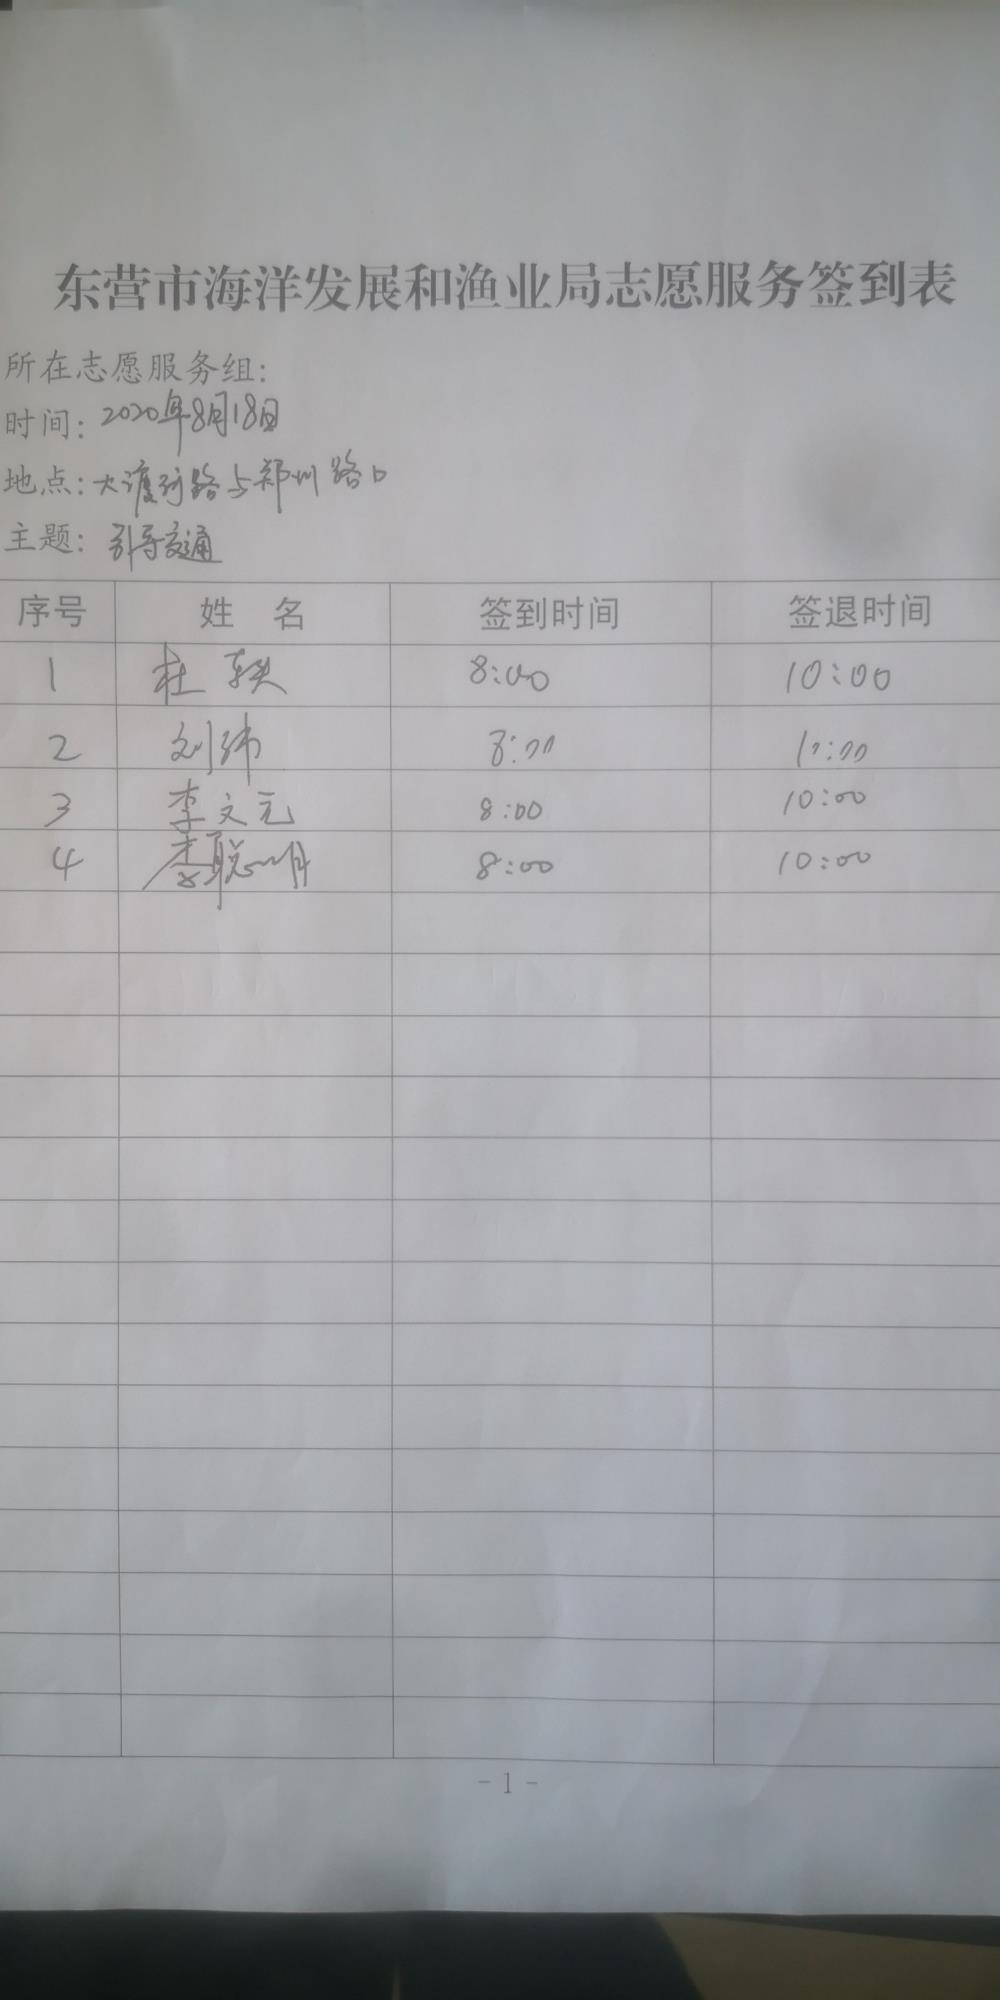 东营市海洋发展和渔业局志愿服务签到表
所在志愿服务组：
时间：2020年8月18日
地点：大渡河路与郑州路口
主题：引导交通
序号 姓 名 签到时间 签退时间
1 杜 轶 8:00 10:00
2 刘纬 8:00 10:00
3 李文元 8:00 10:00
4 李聪明 8:00 10:00
- 1 -